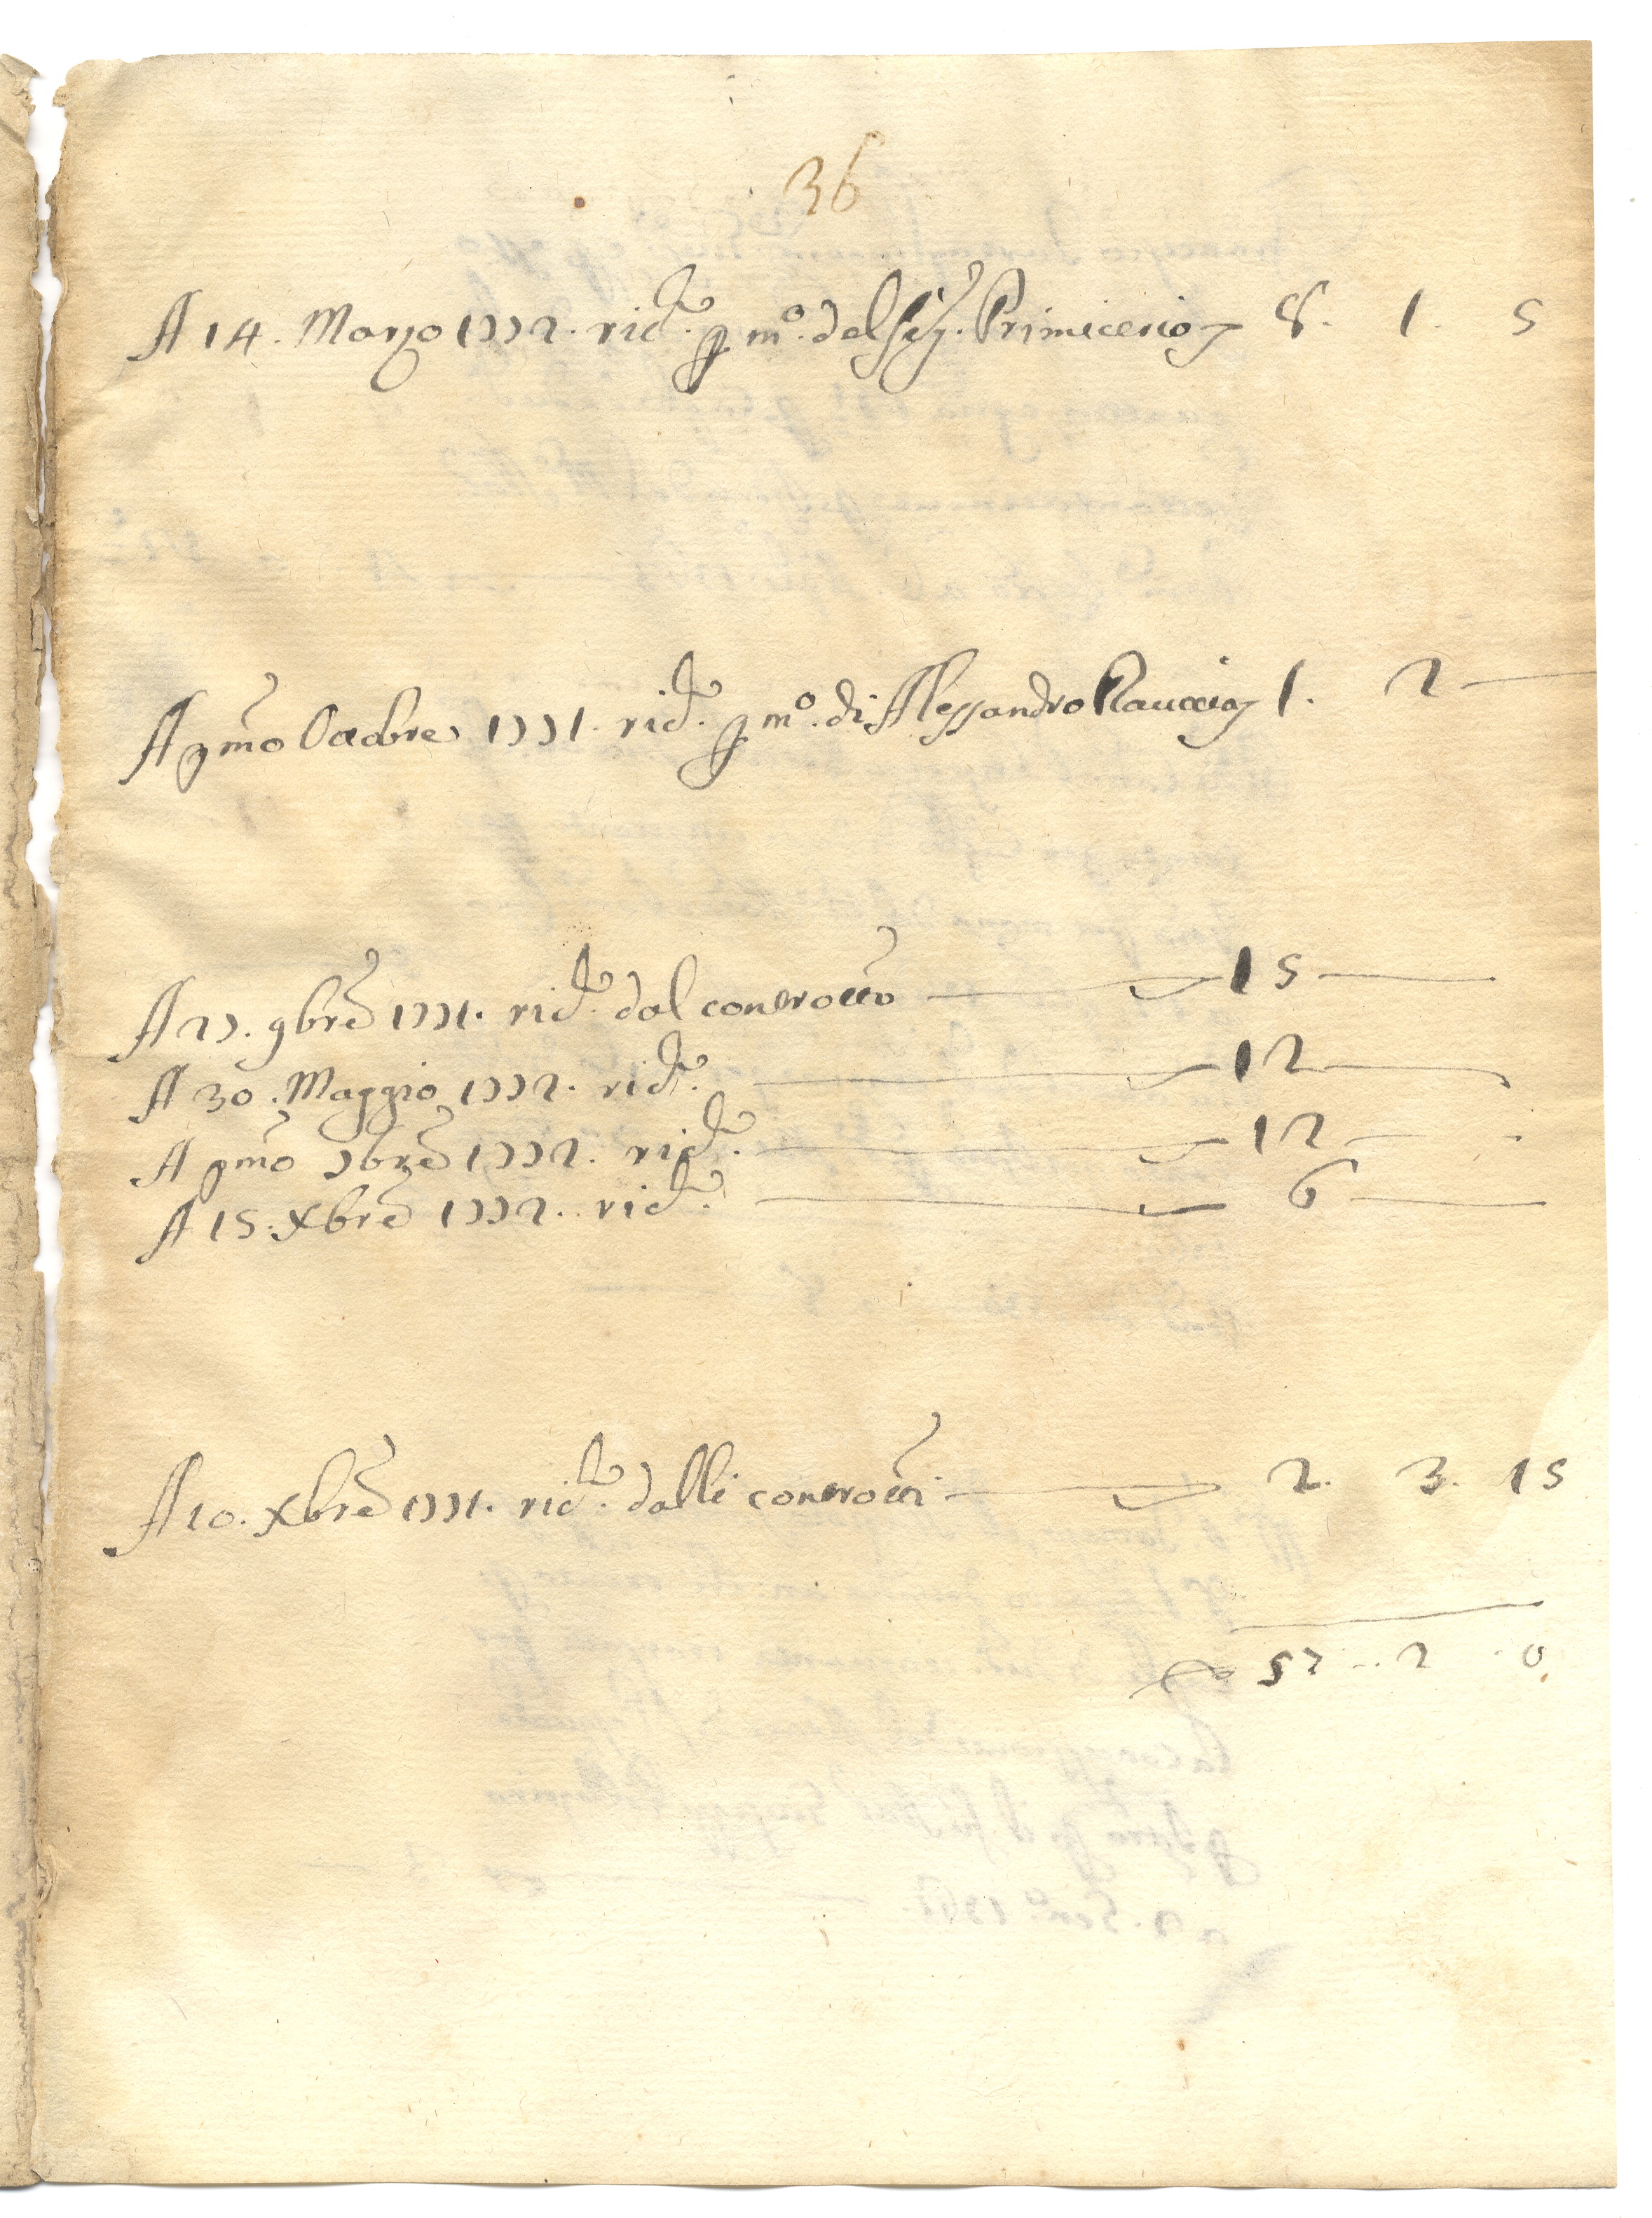 36
A 14. Marzo 1772. ricᵗᵒ. p mº. del Sig. Primicerio 8. 1. 5
A pmo Octobre 1771. ricᵗᵒ. p mº. di Alessandro Rauccio 1. 2
A 27. 9bre 1771. ricᵗᵒ. dal contro 15
A 30. Maggio 1772. ricᵗᵒ. 12
A pmo 7bre 1772. ricᵗᵒ. 12
A 15. Xbre 1772. ricᵗᵒ. 6
A 10. Xbre 1771. ricᵗᵒ. dalli 2. 3. 15
57 .. 2 . 0